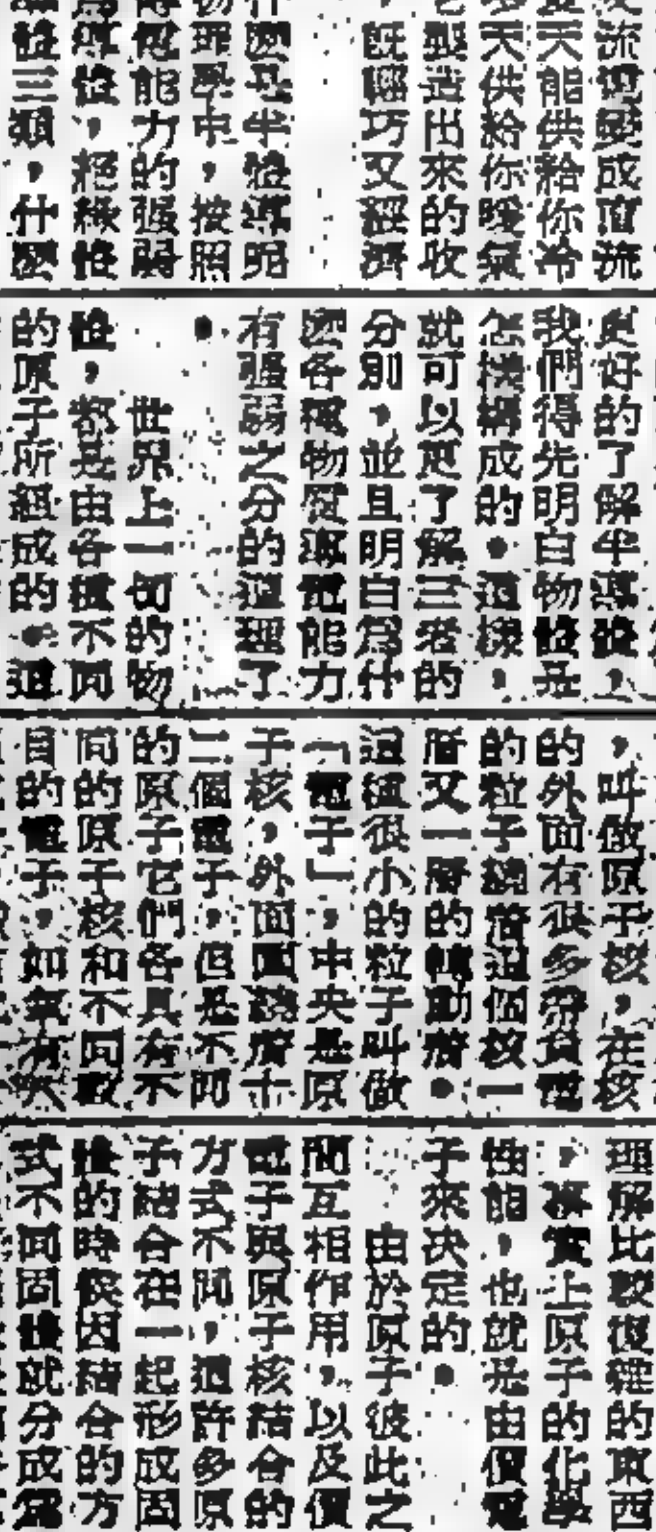 流電變成直流
夏天能供給你冷
天供給你暖氣
製造出來的收
既輕巧又經濟
什麼是半體導呢
物理學中，按照
導電能力的强弱
爲導體，絕緣體
導體三類，什麼
更好的了解半導體，
我們得先明白物體是
怎樣構成的。這樣，
就可以更了解三者的
分別，並且明白爲什
麼各種物質導電能力
有强弱之分的道理了
。
世界上一切的物
體，都是由各種不同
的原子所組成的。這
，叫做原子核，在核
的外面有很多帶負電
的粒子繞着這個核一
層又一層的轉動着。
這種很小的粒子叫做
「電子」，中央是原
子核，外面圍繞着十
二個電子，但是不同
的原子它們各具有不
同的原子核和不同數
目的電子，如氧有
理解比較複雜的東西
，事實上原子的化學
性能，也就是由價電
子來決定的。
由於原子彼此之
間互相作用，以及價
電子與原子核結合的
方式不同，這許多原
子結合在一起形成固
體的時候因結合的方
式不同固體就分成爲